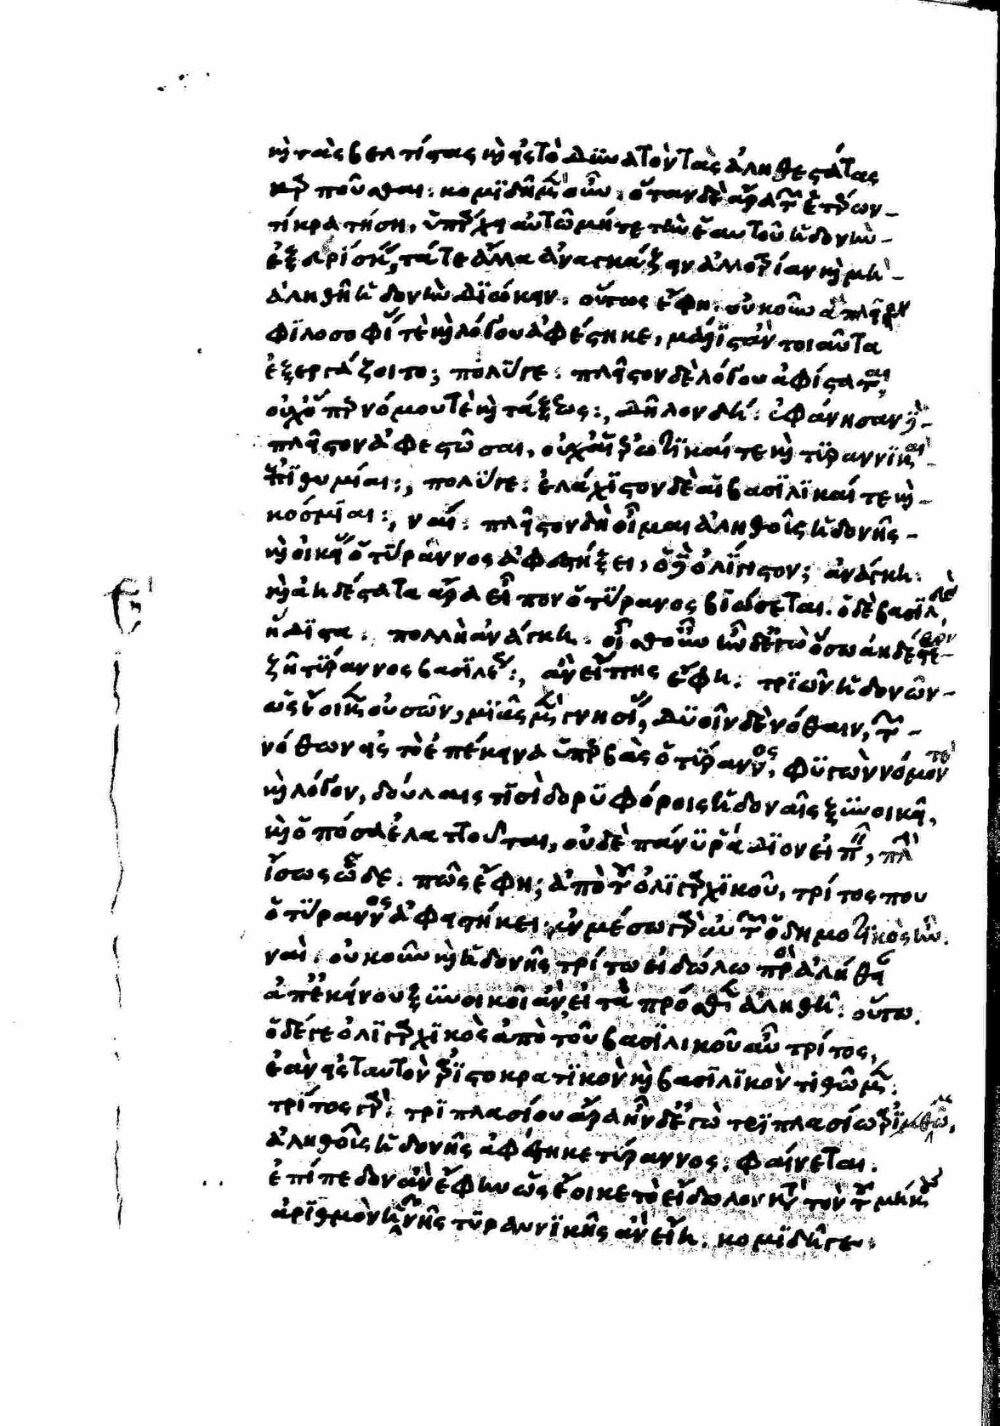 καὶ τὰς βελτίστας καὶ εἰς τὸ δυνατὸν τὰς ἀληθεστάτας
καρποῦσθαι: κομιδῆ μὲν οὖν: ὅταν δὲ ἄρα τῶν ἑτέρων
τι κρατήση, ὑπάρχει αὐτῶ μήτε τὴν ἑαυτοῦ ἡδονὴν
ἐξευρίσκειν, τά τε ἄλλα ἀναγκάζειν ἀλλοτρίαν καὶ μὴ
ἀληθῆ ἡδονὴν διώκειν: οὕτως ἔφη: οὐκοῦν ἃ πλεῖστον
φιλοσοφίας τε καὶ λόγου ἀφέστηκε, μάλιστ' ἂν τοιαῦτα
ἐξεργάζοιτο; πολύ γε: πλεῖστον δὲ λόγου ἀφίσταται,
οὐχ ὅπερ νόμου τε καὶ τάξεως; δῆλον δή: ἐφάνησαν δὲ
πλεῖστον ἀφεστῶσαι, οὐχ αἱ ἐρωτικαί τε καὶ τυραννικαὶ
ἐπιθυμίαι; πολύ γε: ἐλάχιστον δὲ αἱ βασιλικαί τε καὶ
κόσμιαι; ναί: πλεῖστον δὴ οἶμαι ἀληθοῦς ἡδονῆς
καὶ οἰκείας ὁ τύραννος ἀφεστήξει, ὁ δὲ ὀλίγιστον; ἀνάγκη:
καὶ ἀηδέστατα ἄρα εἶπον ὁ τύρανος βιώσεται. ὁ δὲ βασιλεὺς
ἥδιστα: πολλὴ ἀνάγκη: οἶσθ' οὖν ἦν δ' ἐγὼ ὅσω ἀηδέστερον
ζῆ τύραννος βασιλέως; ἂν εἴπης ἔφη: τριῶν ἡδονῶν
ὡς ἔοικεν οὐσῶν, μιᾶς μὲν γνησίας, δυοῖν δὲ νόθαιν, τῶν
νόθων εἰς τὸ ἐπέκεινα ὑπερβὰς ὁ τύραννος, φυγὼν νόμον τε
καὶ λόγον, δούλαις τισὶ δορυφόροις ἡδοναῖς ξυνοικεῖ,
καὶ ὁπόσα ἐλαττοῦται, οὐδὲ πάνυ ῥάδιον εἰπεῖν, πλὴν
ἴσως ὧδε: πῶς ἔφη; ἀπὸ τοῦ ὀλιγαρχικοῦ, τρίτος που
ὁ τύραννος ἀφειστήκει: ἐν μέσω γὰρ αὐτῶν ὁ δημοτικὸς ἦν:
ναί: οὐκοῦν καὶ ἡδονῆς τρίτω εἰδώλω πρὸς ἀλήθειαν
ἀπ' ἐκείνου ξυνοικοῖ ἄν, εἰ τὰ πρόσθεν ἀληθῆ: οὕτω:
ὁ δέ γε ὀλιγαρχικὸς ἀπὸ τοῦ βασιλικοῦ αὖ τρίτος,
ἐὰν εἰς ταυτὸν ἀριστοκρατικὸν καὶ βασιλικὸν τιθῶμεν:
τρίτος γάρ: τριπλασίου ἄρα ἦν δ' ἐγὼ τριπλάσιον ἀριθμῶ,
ἀληθοῦς ἡδονῆς ἀφέστηκε τύραννος: φαίνεται:
ἐπίπεδον ἄν ἔφην ὡς ἔοικε τὸ εἴδωλον κατὰ τὸν τοῦ μήκους
ἀριθμὸν ἡδονῆς τυραννικῆς ἂν εἴη: κομιδῆ γε: